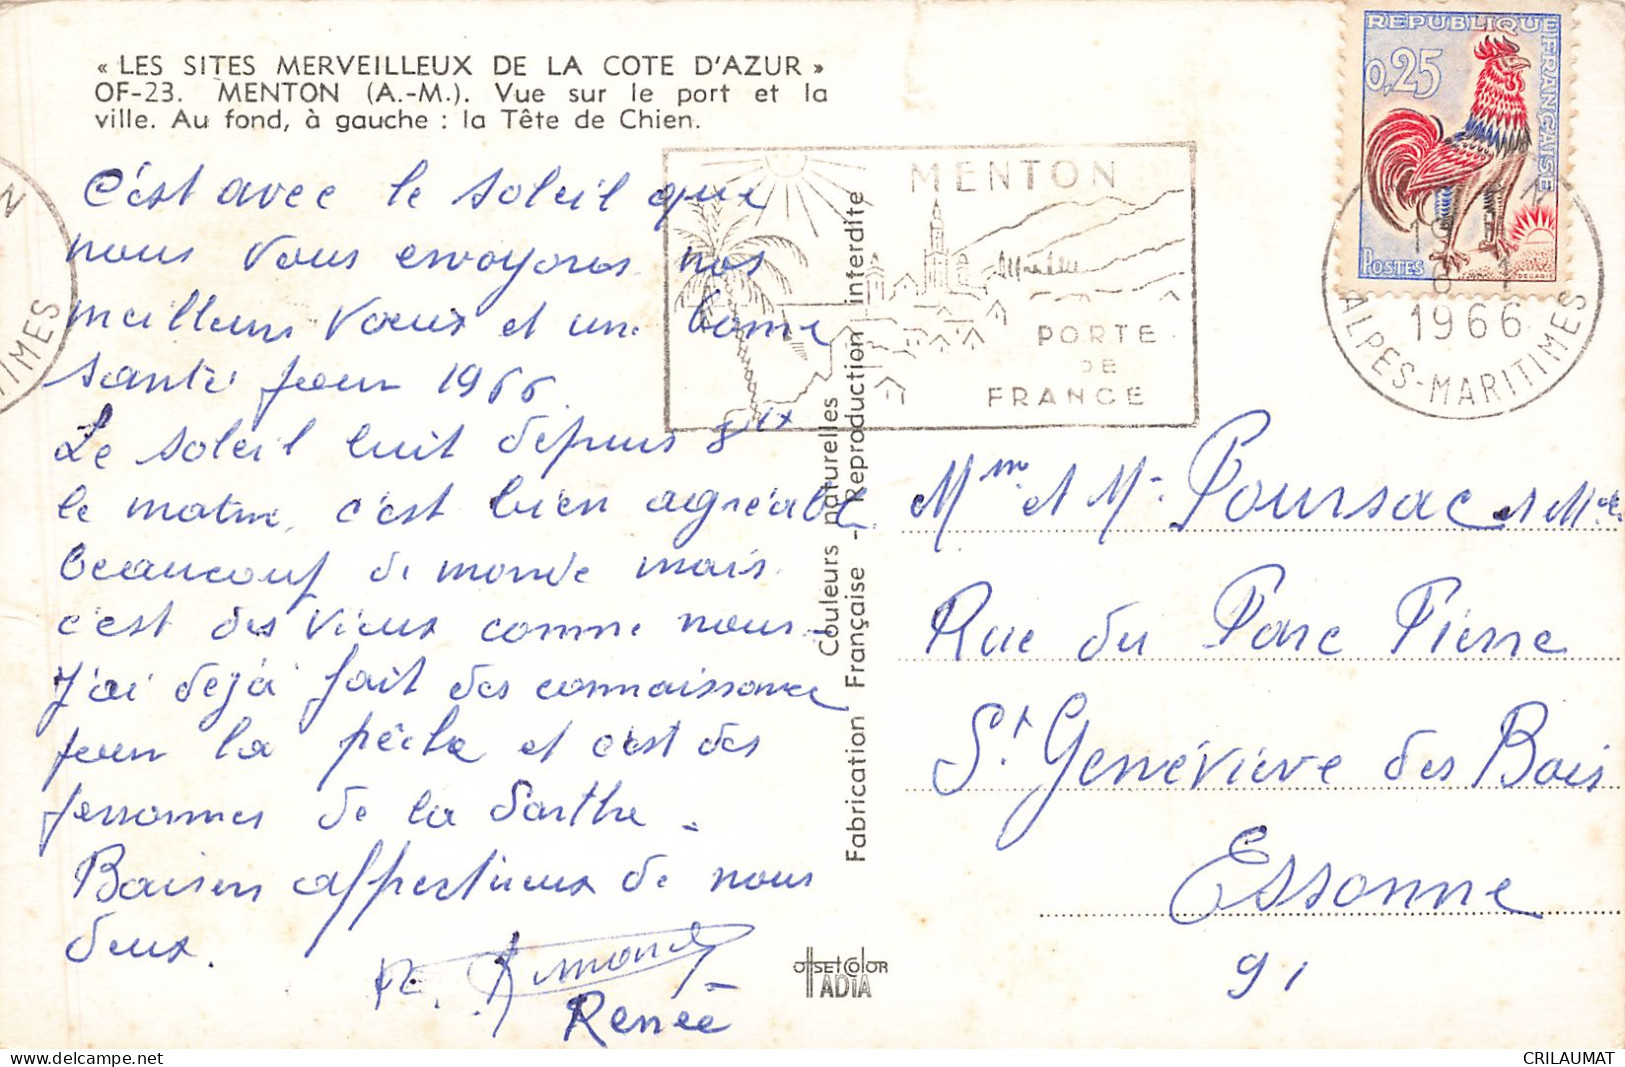 « LES SITES MERVEILLEUX DE LA COTE D'AZUR »
OF-23. MENTON (A.-M.). Vue sur le port et la
ville. Au fond, à gauche : la Tête de Chien.
C'est avec le soleil que
nous vous envoyons nos
meilleurs vœux et une bonne
santé pour 1966
Le soleil luit depuis 8
le matin, c'est bien agréable
beaucoup de monde mais
c'est des vieux comme nous.
J'ai déjà fait des connaissance
pour la pêche et c'est des
personnes de la Sarthe.
Baisers affectueux de nous
deux.
Renée
MENTON
PORTE
DE
FRANCE
REPUBLIQUE FRANÇAISE
0,25
POSTES
1966
ALPES-MARITIMES
TIMES
Couleurs naturelles
Fabrication Française - Reproduction interdite
Mme et Mr Poursac et
Rue du Parc Pierre
St Geneviève des Bois
Essonne
91
OffSETCOlOR
IADIA
CRILAUMAT
www.delcampe.net